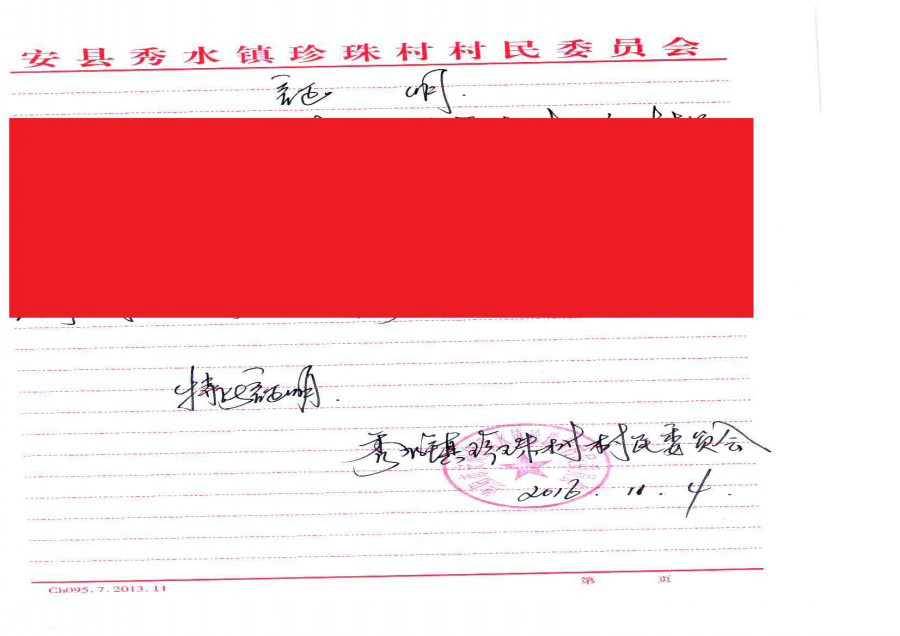 安县秀水镇珍珠村村民委员会
证 明.
特此证明.
秀水镇珍珠村村民委员会
2016.11.4.
Ch095.7.2013.11
第 页